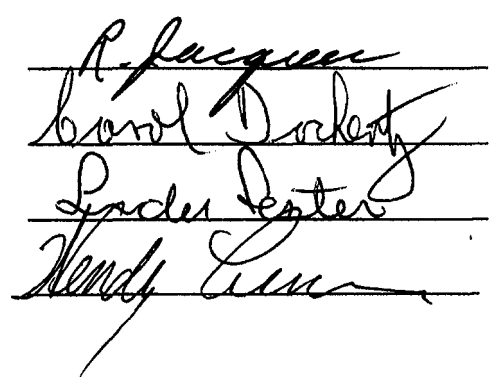 R. Jacques
Carol Dockerty
Lender Penter
Wendy